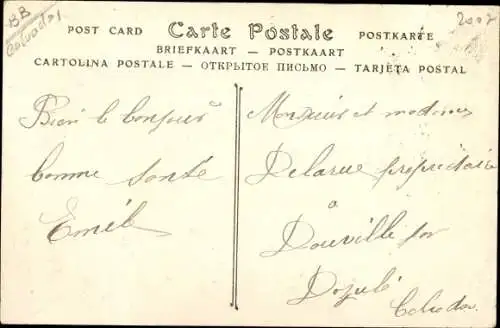 BB
Calvados
2007
POST CARD Carte Postale POSTKARTE
BRIEFKAART — POSTKAART
CARTOLINA POSTALE — ОТКРЫТОЕ ПИСЬМО — TARJETA POSTAL
Bien le bonjour
bonne santé
Emél
Monsieur et madame
Delarue propriétaire
à
Douville par
Dozulé